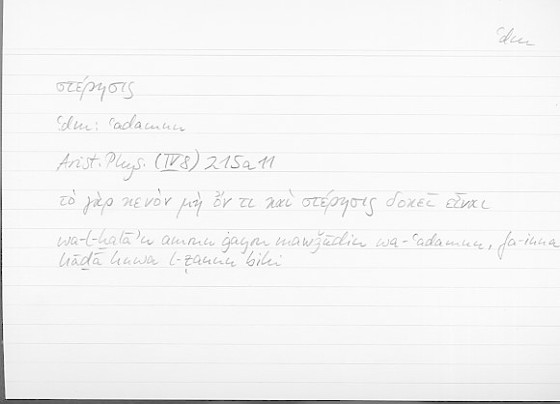 ʿdm
στέρησις
ʿdm: ʿadamun
Arist. Phys. (IV 8) 215a11
τὸ γὰρ κενὸν μὴ ὄν τι καὶ στέρησις δοκεῖ εἶναι
wa-l-ḫalāʾu amrun ġayru mawǧūdin wa-ʿadamun, fa-inna
hāḏā huwa l-ẓannu bihī